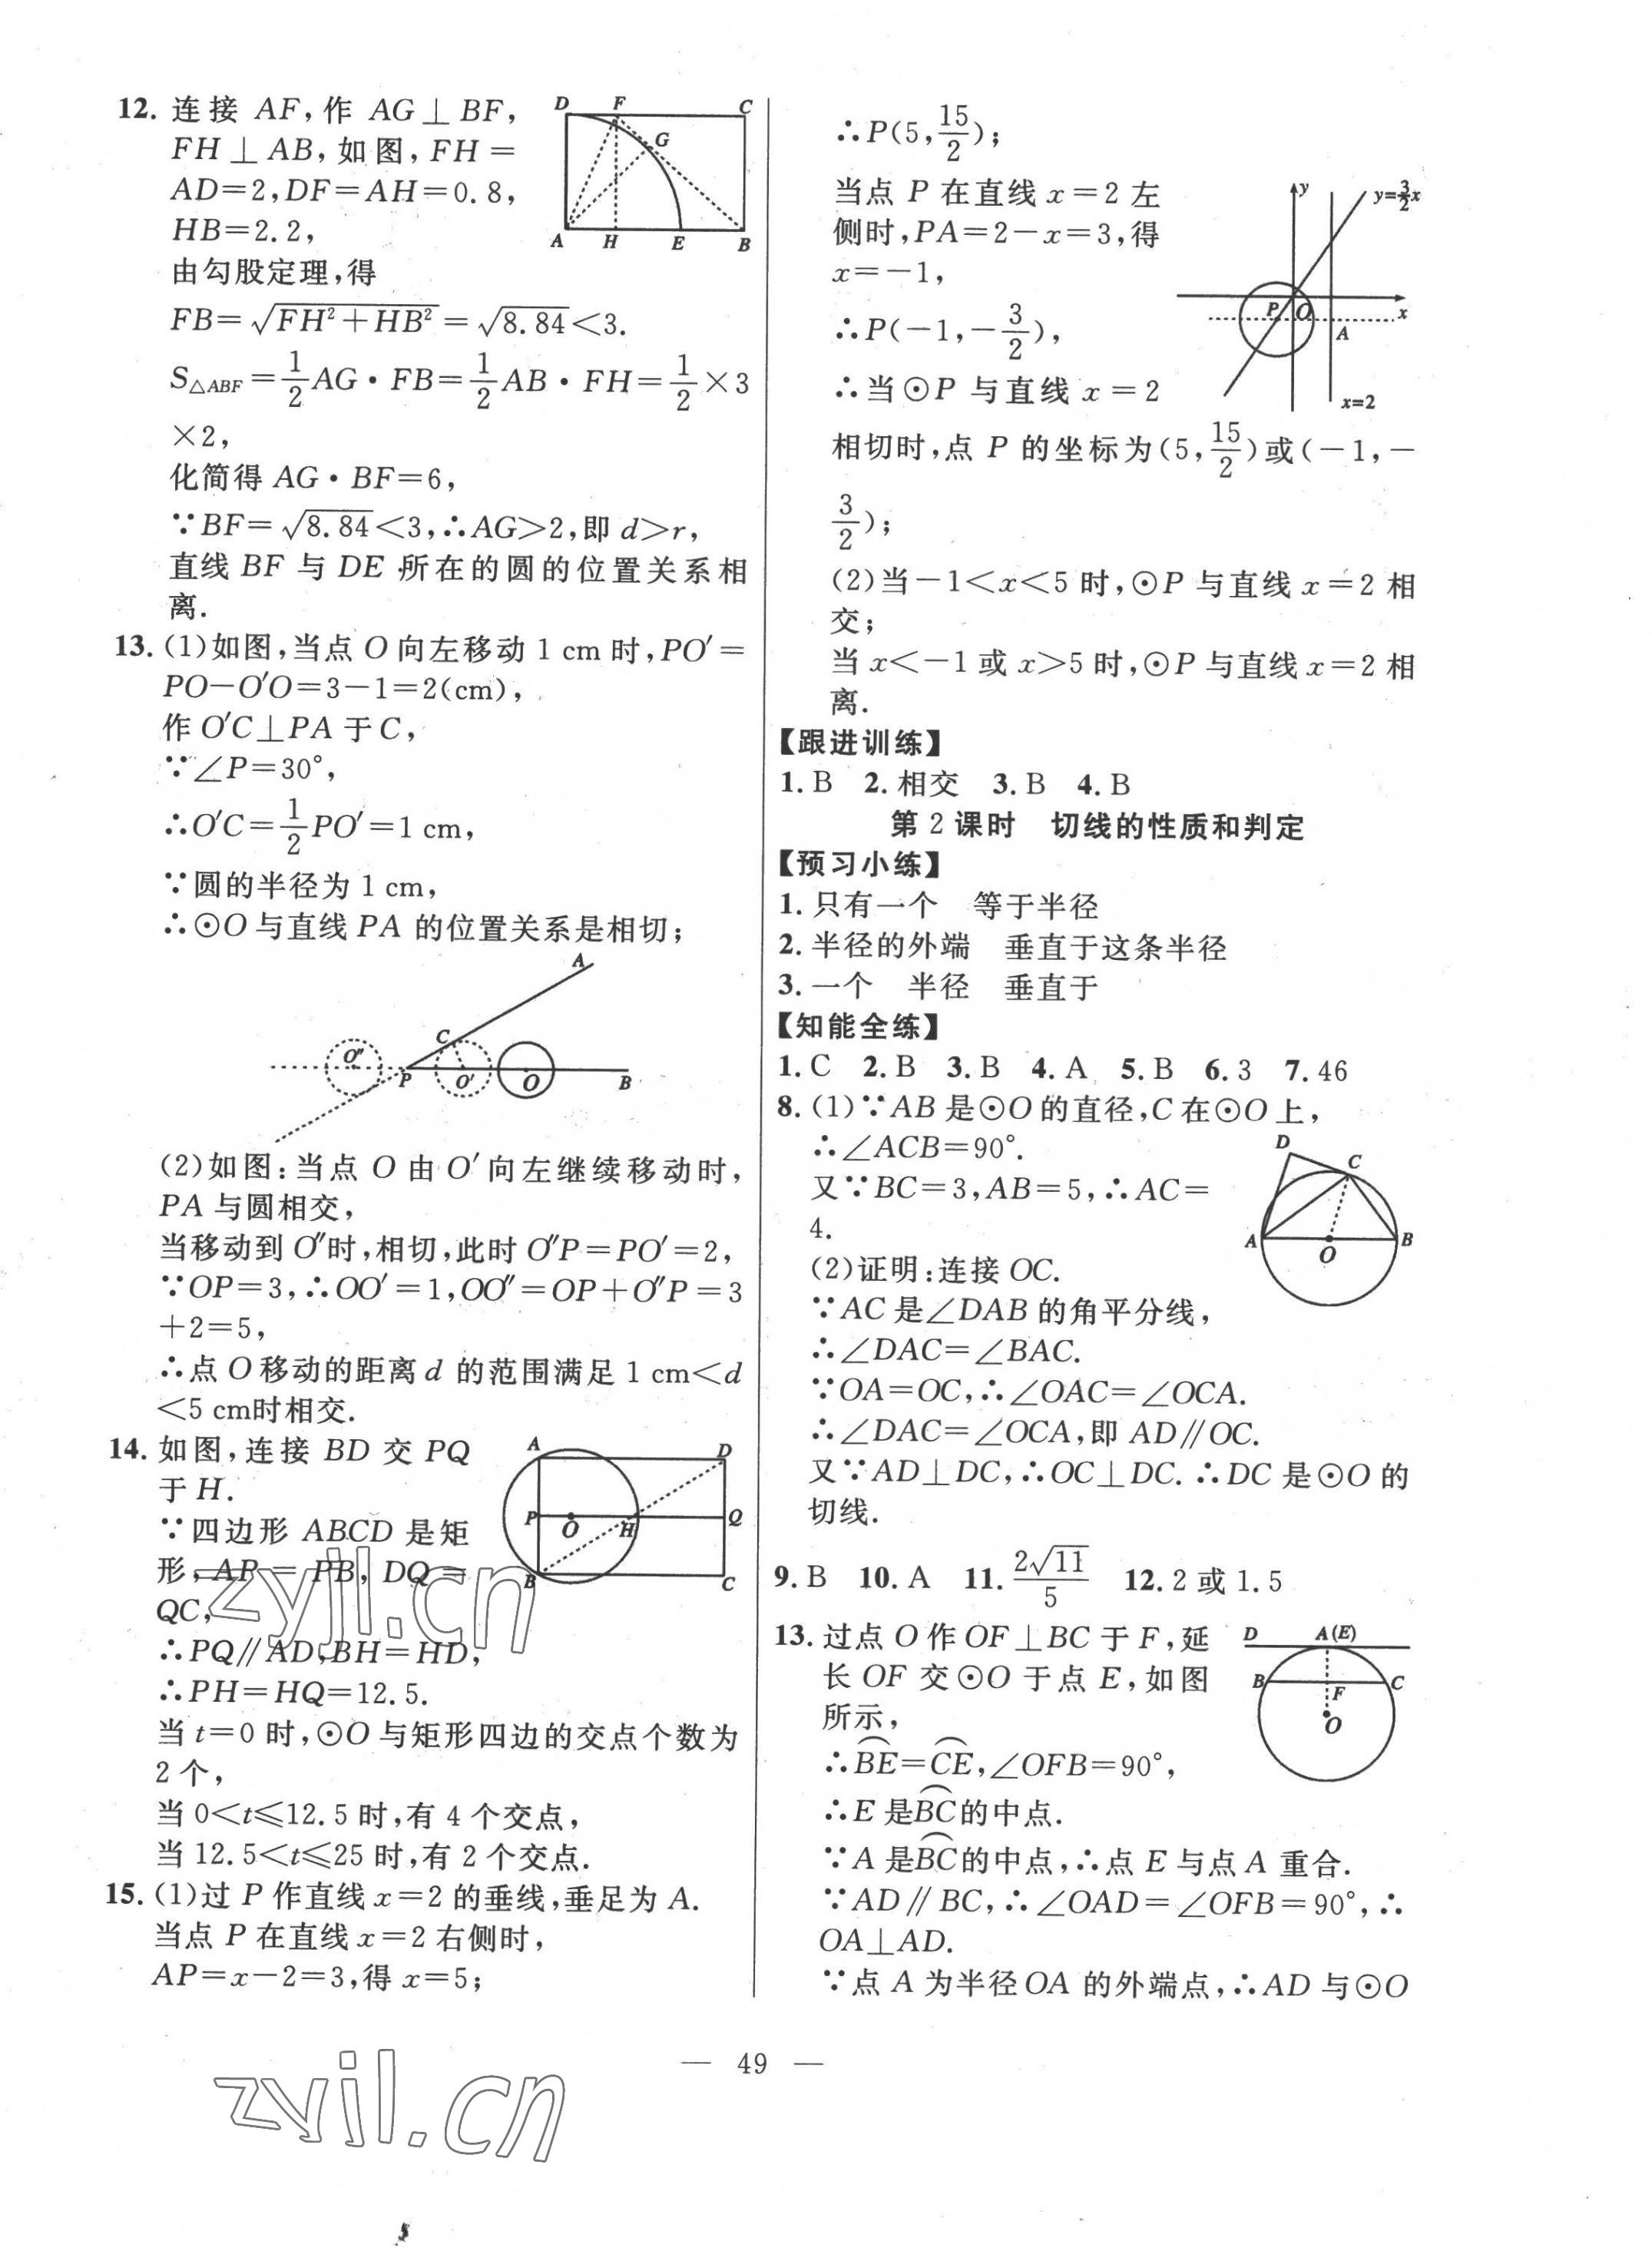 12. 连接 AF,作 AG⊥BF,
FH⊥AB,如图,FH=
AD=2,DF=AH=0.8,
HB=2.2,
由勾股定理,得
FB=√(FH²+HB²)=√8.84<3.
S△ABF=1/2 AG·FB=1/2 AB·FH=1/2×3
×2,
化简得 AG·BF=6,
∵BF=√8.84<3,∴AG>2,即 d>r,
直线 BF 与 DE 所在的圆的位置关系相
离.
D F C
G
A H E B
13. (1)如图,当点 O 向左移动 1 cm 时,PO′=
PO−O′O=3−1=2(cm),
作 O′C⊥PA 于 C,
∵∠P=30°,
∴O′C=1/2 PO′=1 cm,
∵圆的半径为 1 cm,
∴⊙O 与直线 PA 的位置关系是相切;
A
C
O″ P O′ O B
(2)如图:当点 O 由 O′ 向左继续移动时,
PA 与圆相交,
当移动到 O″时,相切,此时 O″P=PO′=2,
∵OP=3,∴OO′=1,OO″=OP+O″P=3
+2=5,
∴点 O 移动的距离 d 的范围满足 1 cm<d
<5 cm时相交.
14. 如图,连接 BD 交 PQ
于 H.
∵四边形 ABCD 是矩
形,AP=PB,DQ=
QC,
∴PQ∥AD,BH=HD,
∴PH=HQ=12.5.
当 t=0 时,⊙O 与矩形四边的交点个数为
2 个,
当 0<t≤12.5 时,有 4 个交点,
当 12.5<t≤25 时,有 2 个交点.
A D
P O H Q
B C
15. (1)过 P 作直线 x=2 的垂线,垂足为 A.
当点 P 在直线 x=2 右侧时,
AP=x−2=3,得 x=5;
∴P(5,15/2);
当点 P 在直线 x=2 左
侧时,PA=2−x=3,得
x=−1,
∴P(−1,−3/2),
∴当⊙P 与直线 x=2
相切时,点 P 的坐标为(5,15/2)或(−1,−
3/2);
y y=3/2x
P O x
A
x=2
(2)当−1<x<5 时,⊙P 与直线 x=2 相
交;
当 x<−1 或 x>5 时,⊙P 与直线 x=2 相
离.
【跟进训练】
1. B 2. 相交 3. B 4. B
第 2 课时 切线的性质和判定
【预习小练】
1. 只有一个 等于半径
2. 半径的外端 垂直于这条半径
3. 一个 半径 垂直于
【知能全练】
1. C 2. B 3. B 4. A 5. B 6. 3 7. 46
8. (1)∵AB 是⊙O 的直径,C 在⊙O 上,
∴∠ACB=90°.
又∵BC=3,AB=5,∴AC=
4.
(2)证明:连接 OC.
∵AC 是∠DAB 的角平分线,
∴∠DAC=∠BAC.
∵OA=OC,∴∠OAC=∠OCA.
∴∠DAC=∠OCA,即 AD∥OC.
又∵AD⊥DC,∴OC⊥DC.∴DC 是⊙O 的
切线.
D C
A O B
9. B 10. A 11. 2√11/5 12. 2 或 1.5
13. 过点 O 作 OF⊥BC 于 F,延
长 OF 交⊙O 于点 E,如图
所示,
∴B͡E=C͡E,∠OFB=90°,
∴E 是B͡C的中点.
∵A 是B͡C的中点,∴点 E 与点 A 重合.
∵AD∥BC,∴∠OAD=∠OFB=90°,∴
OA⊥AD.
∵点 A 为半径 OA 的外端点,∴AD 与⊙O
D A(E)
B F C
O
zyjl.cn
— 49 —
zyjl.cn